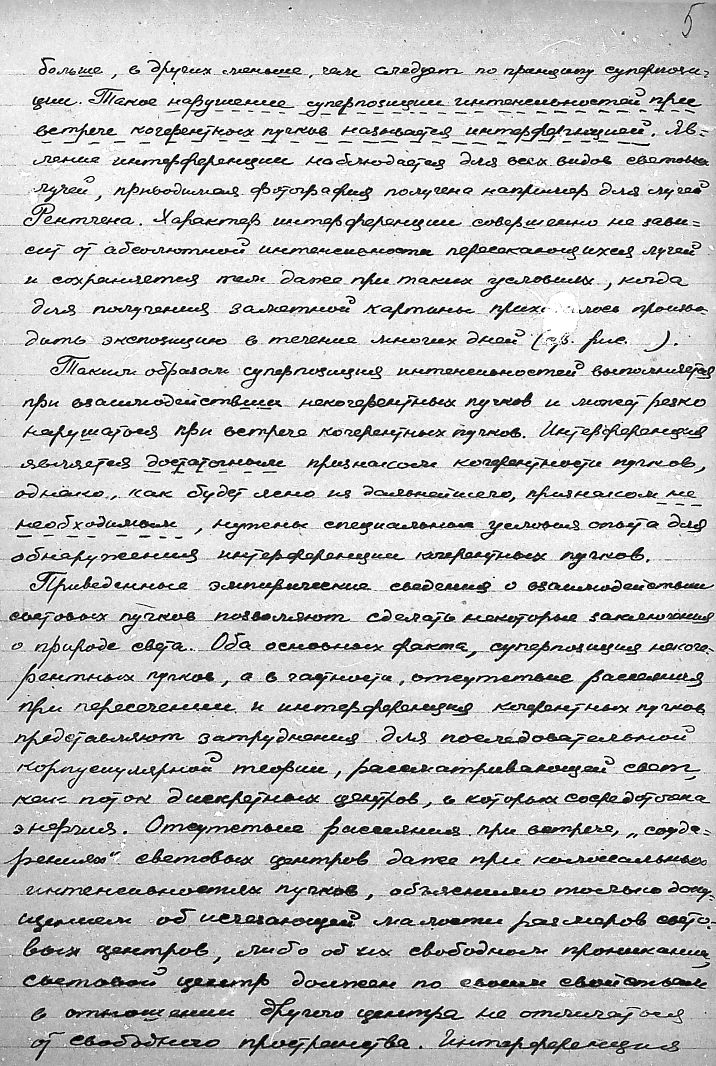 5
больше, в других меньше, чем следует по принципу суперпози-
ции. Такое нарушение суперпозиции интенсивностей при
встрече когерентных пучков называется интерференцией. Яв-
ление интерференции наблюдается для всех видов световых
лучей, приводимая фотография получена например для лучей
Рентгена. Характер интерференции совершенно не зави-
сит от абсолютной интенсивности пересекающихся лучей
и сохраняется тем даже при таких условиях, когда
для получения заметной картины приходилось произво-
дить экспозицию в течение многих дней (ср. рис. ).
Таким образом суперпозиция интенсивностей выполняется
при взаимодействии некогерентных пучков и может резко
нарушаться при встрече когерентных пучков. Интерференция
является достаточным признаком когерентности пучков,
однако, как будет ясно из дальнейшего, признаком не
необходимым, нужны специальные условия опыта для
обнаружения интерференции когерентных пучков.
Приведенные эмпирические сведения о взаимодействии
световых пучков позволяют сделать некоторые заключения
о природе света. Оба основных факта, суперпозиция некоге-
рентных пучков, а в частности, отсутствие рассеяния
при пересечении и интерференция когерентных пучков
представляют затруднения для последовательной
корпускулярной теории, рассматривающей свет,
как поток дискретных центров, в которых сосредоточена
энергия. Отсутствие рассеяния при встрече, „соуда-
рениях“ световых центров даже при колоссальных
интенсивностях пучков, объяснимо только допу-
щением об исчезающей малости размеров свето-
вых центров, либо об их свободном проникании,
световой центр должен по своим свойствам
в отношении другого центра не отличаться
от свободного пространства. Интерференция